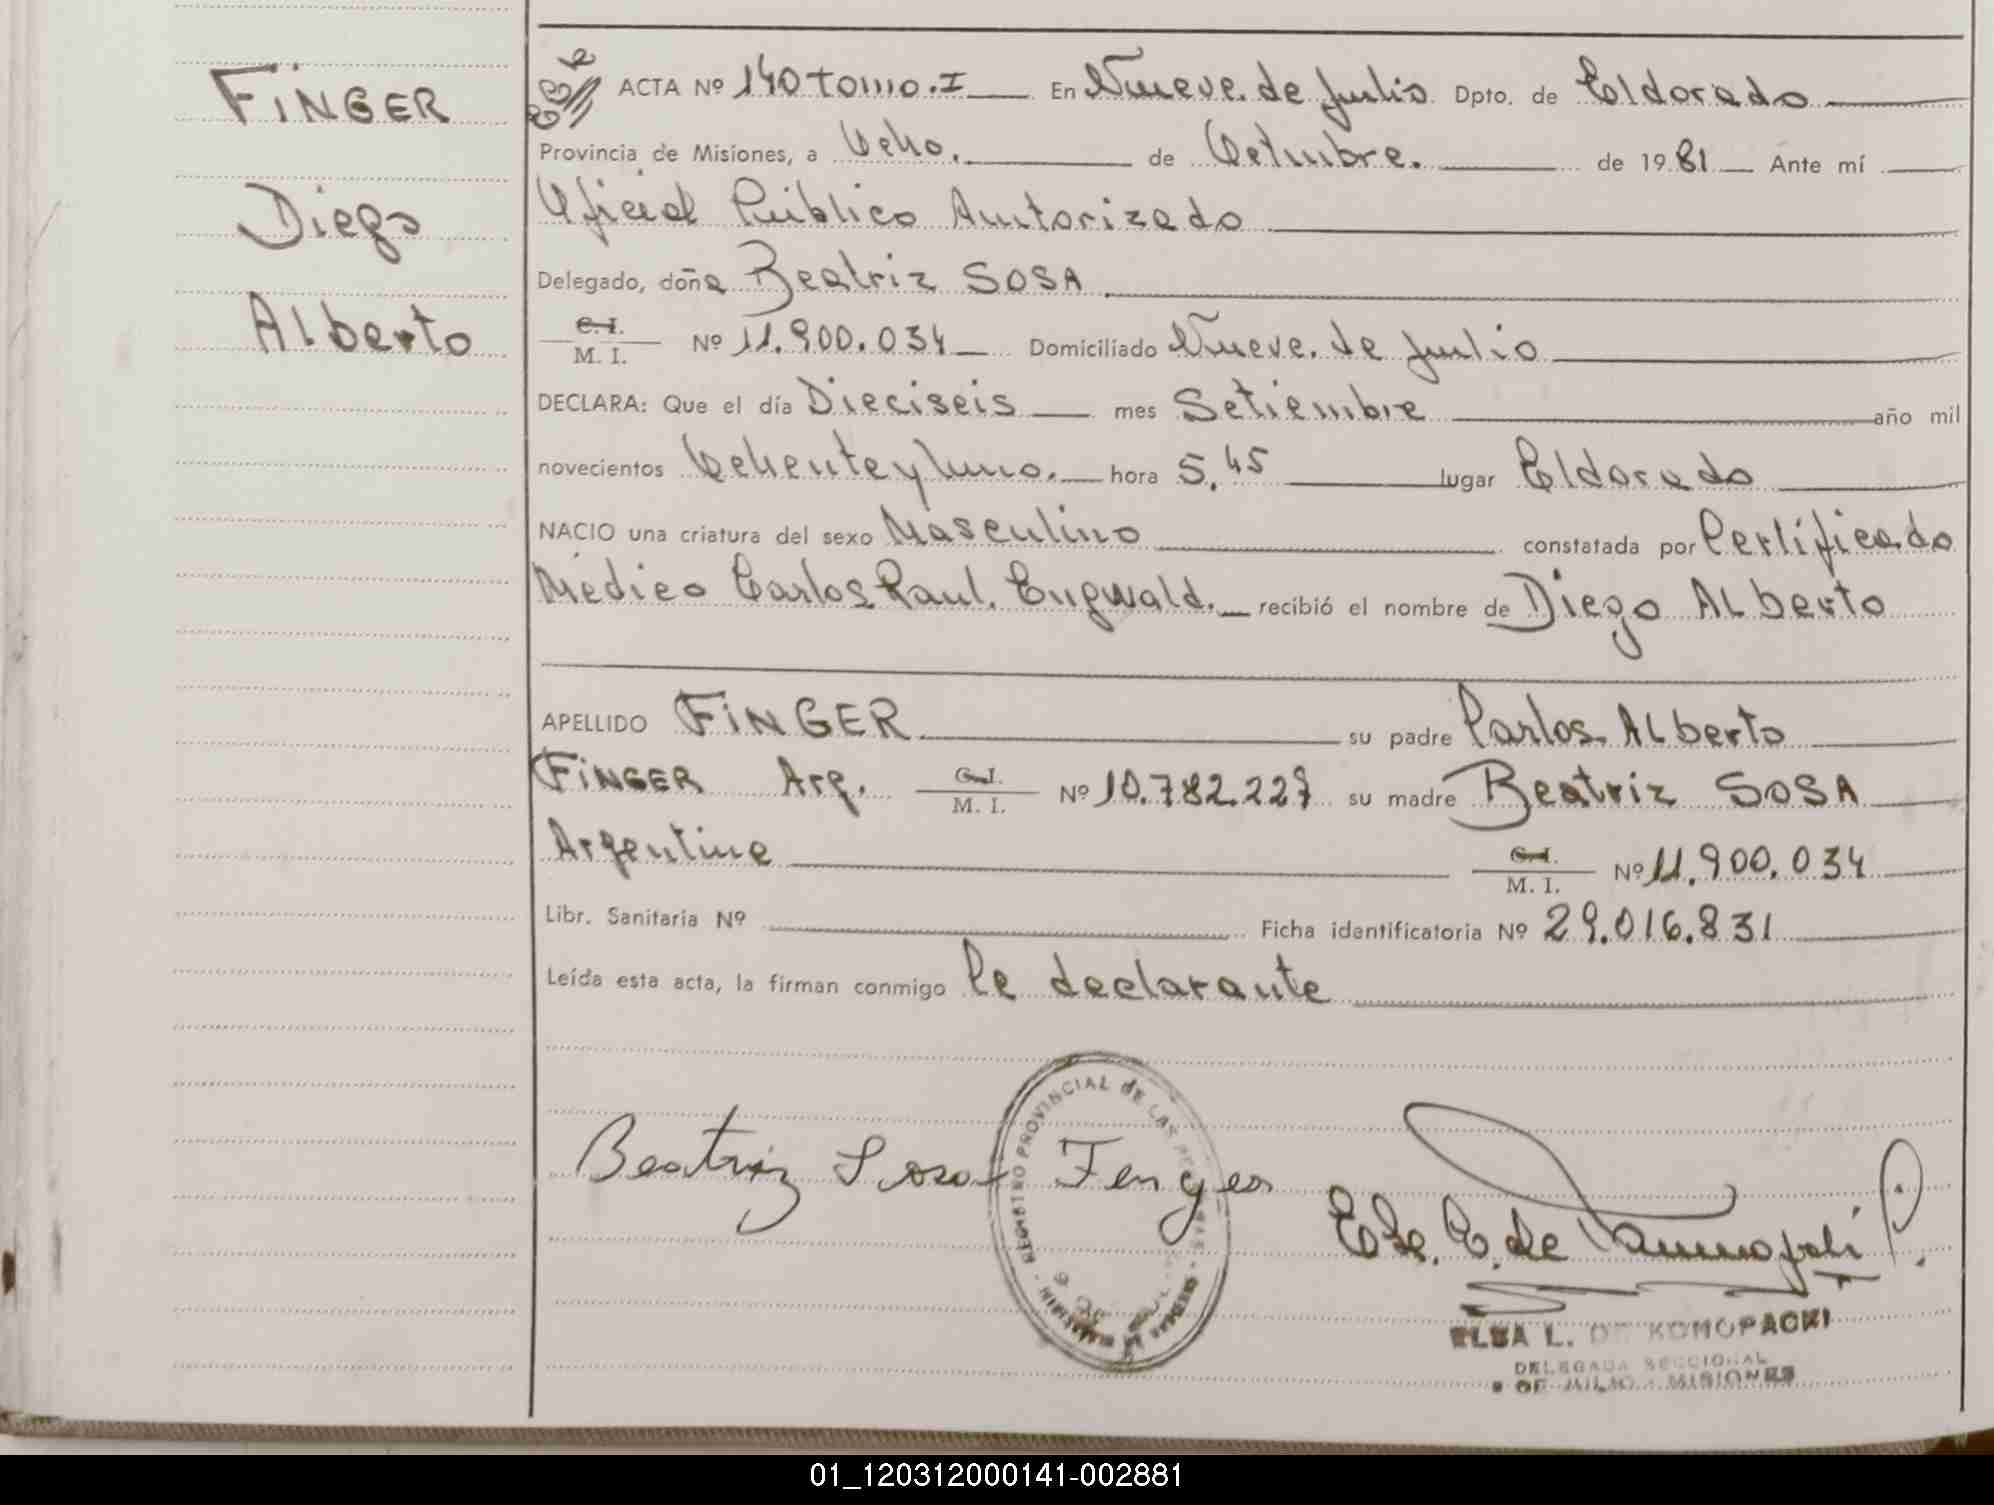 FINGER
Diego
Alberto
ACTA Nº 140 tomo.I En Nueve de Julio Dpto. de Eldorado
Provincia de Misiones, a Ocho. de Octubre. de 1981 Ante mí
Oficial Público Autorizado
Delegado, doña Beatriz SOSA
C. I.
M. I. Nº 11.900.034 Domiciliado Nueve de Julio
DECLARA: Que el día Dieciseis mes Setiembre año mil
novecientos Ochenta y Uno. hora 5,45 lugar Eldorado
NACIO una criatura del sexo Masculino constatada por Certificado
Médico Carlos Raul. recibió el nombre de Diego Alberto
APELLIDO FINGER su padre Carlos Alberto
FINGER Arg. C. I.
M. I. Nº 10.782.227 su madre Beatriz SOSA
Argentina C. I.
M. I. Nº 11.900.034
Libr. Sanitaria Nº Ficha identificatoria Nº 29.016.831
Leída esta acta, la firman conmigo la declarante
REGISTRO PROVINCIAL DE LAS PERSONAS
Beatriz Sosa
ELSA L. DE KONOPACKI
DELEGADA SECCIONAL
9 DE JULIO - MISIONES
01_120312000141-002881